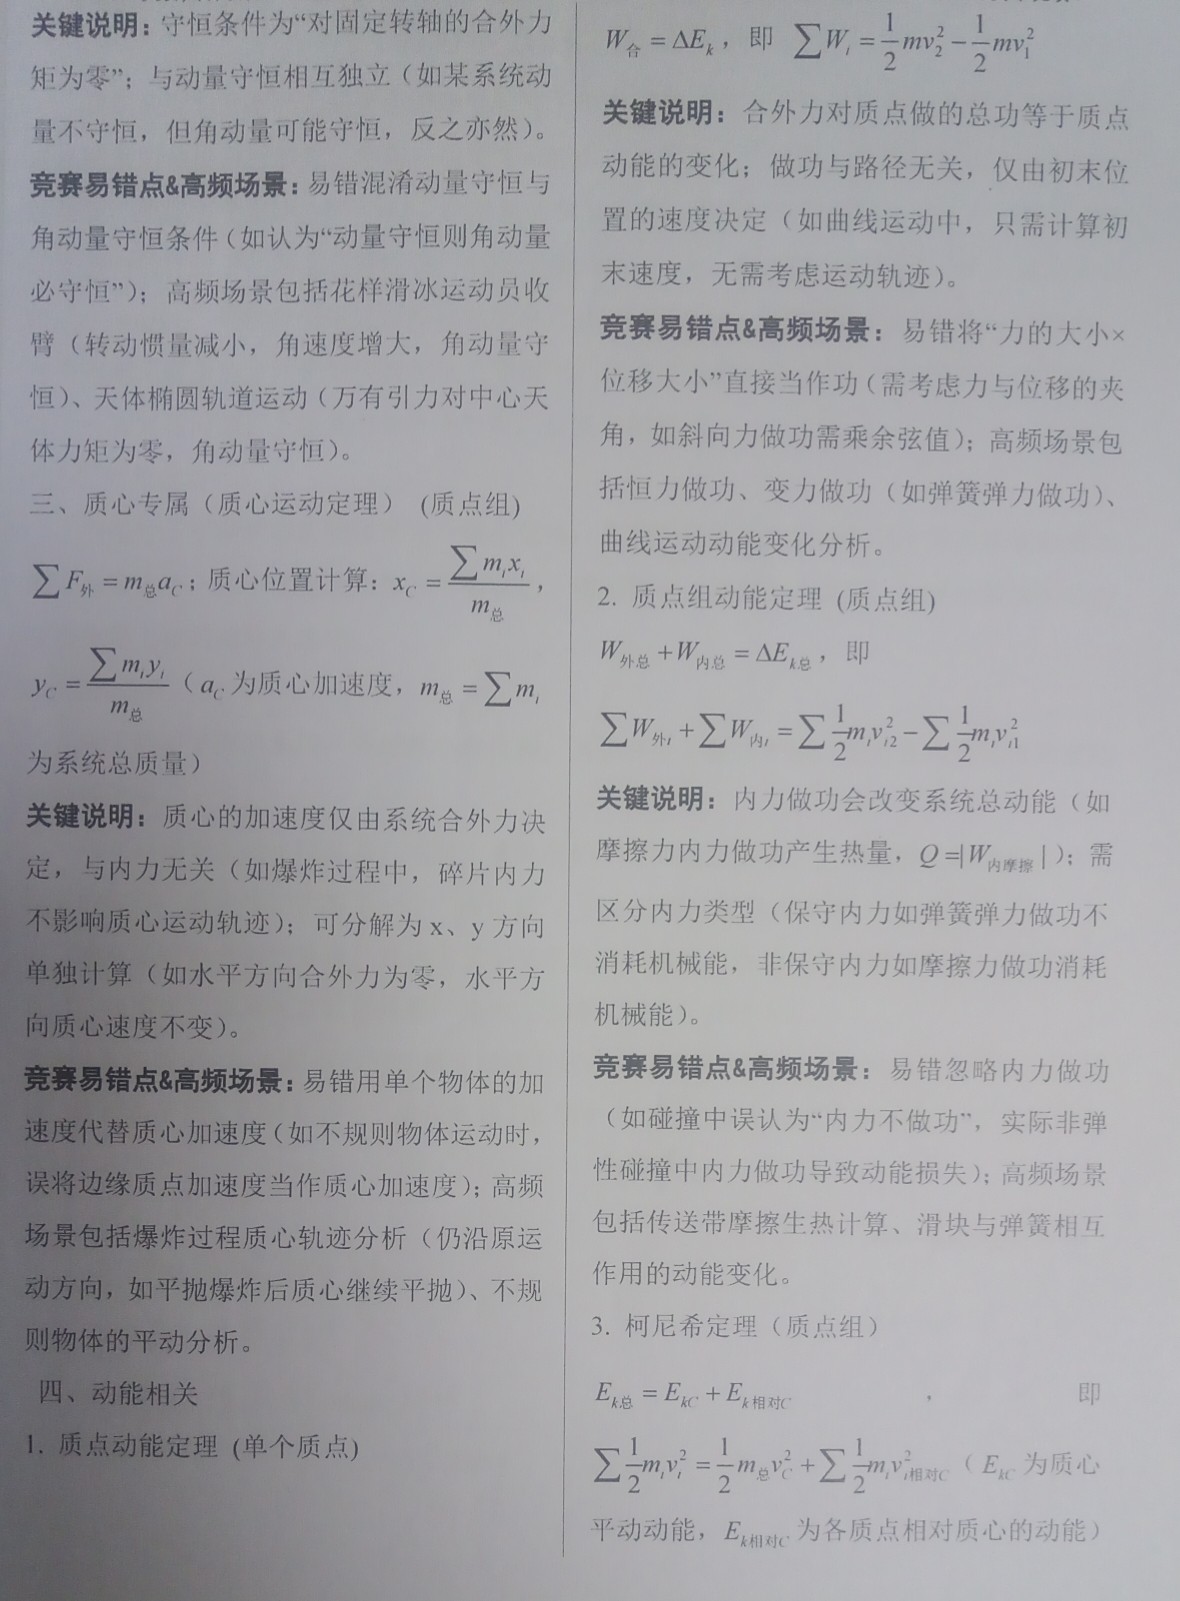 关键说明：守恒条件为“对固定转轴的合外力
矩为零”；与动量守恒相互独立（如某系统动
量不守恒，但角动量可能守恒，反之亦然）。
竞赛易错点&高频场景：易错混淆动量守恒与
角动量守恒条件（如认为“动量守恒则角动量
必守恒”）；高频场景包括花样滑冰运动员收
臂（转动惯量减小，角速度增大，角动量守
恒）、天体椭圆轨道运动（万有引力对中心天
体力矩为零，角动量守恒）。
三、质心专属（质心运动定理） (质点组)
∑F外 = m总aC；质心位置计算：xC = ∑mixi / m总，
yC = ∑miyi / m总（aC 为质心加速度，m总 = ∑mi
为系统总质量）
关键说明：质心的加速度仅由系统合外力决
定，与内力无关（如爆炸过程中，碎片内力
不影响质心运动轨迹）；可分解为 x、y 方向
单独计算（如水平方向合外力为零，水平方
向质心速度不变）。
竞赛易错点&高频场景：易错用单个物体的加
速度代替质心加速度（如不规则物体运动时，
误将边缘质点加速度当作质心加速度）；高频
场景包括爆炸过程质心轨迹分析（仍沿原运
动方向，如平抛爆炸后质心继续平抛）、不规
则物体的平动分析。
四、动能相关
1. 质点动能定理 (单个质点)
W合 = ΔEk，即 ∑Wi = 1/2 mv2² − 1/2 mv1²
关键说明：合外力对质点做的总功等于质点
动能的变化；做功与路径无关，仅由初末位
置的速度决定（如曲线运动中，只需计算初
末速度，无需考虑运动轨迹）。
竞赛易错点&高频场景：易错将“力的大小×
位移大小”直接当作功（需考虑力与位移的夹
角，如斜向力做功需乘余弦值）；高频场景包
括恒力做功、变力做功（如弹簧弹力做功）、
曲线运动动能变化分析。
2. 质点组动能定理 (质点组)
W外总 + W内总 = ΔEk总，即
∑W外i + ∑W内i = ∑1/2 mivi2² − ∑1/2 mivi1²
关键说明：内力做功会改变系统总动能（如
摩擦力内力做功产生热量，Q =|W内摩擦 |）；需
区分内力类型（保守内力如弹簧弹力做功不
消耗机械能，非保守内力如摩擦力做功消耗
机械能）。
竞赛易错点&高频场景：易错忽略内力做功
（如碰撞中误认为“内力不做功”，实际非弹
性碰撞中内力做功导致动能损失）；高频场景
包括传送带摩擦生热计算、滑块与弹簧相互
作用的动能变化。
3. 柯尼希定理（质点组）
Ek总 = EkC + Ek相对C ， 即
∑1/2 mivi² = 1/2 m总vC² + ∑1/2 mivi相对C²（EkC 为质心
平动动能，Ek相对C 为各质点相对质心的动能）